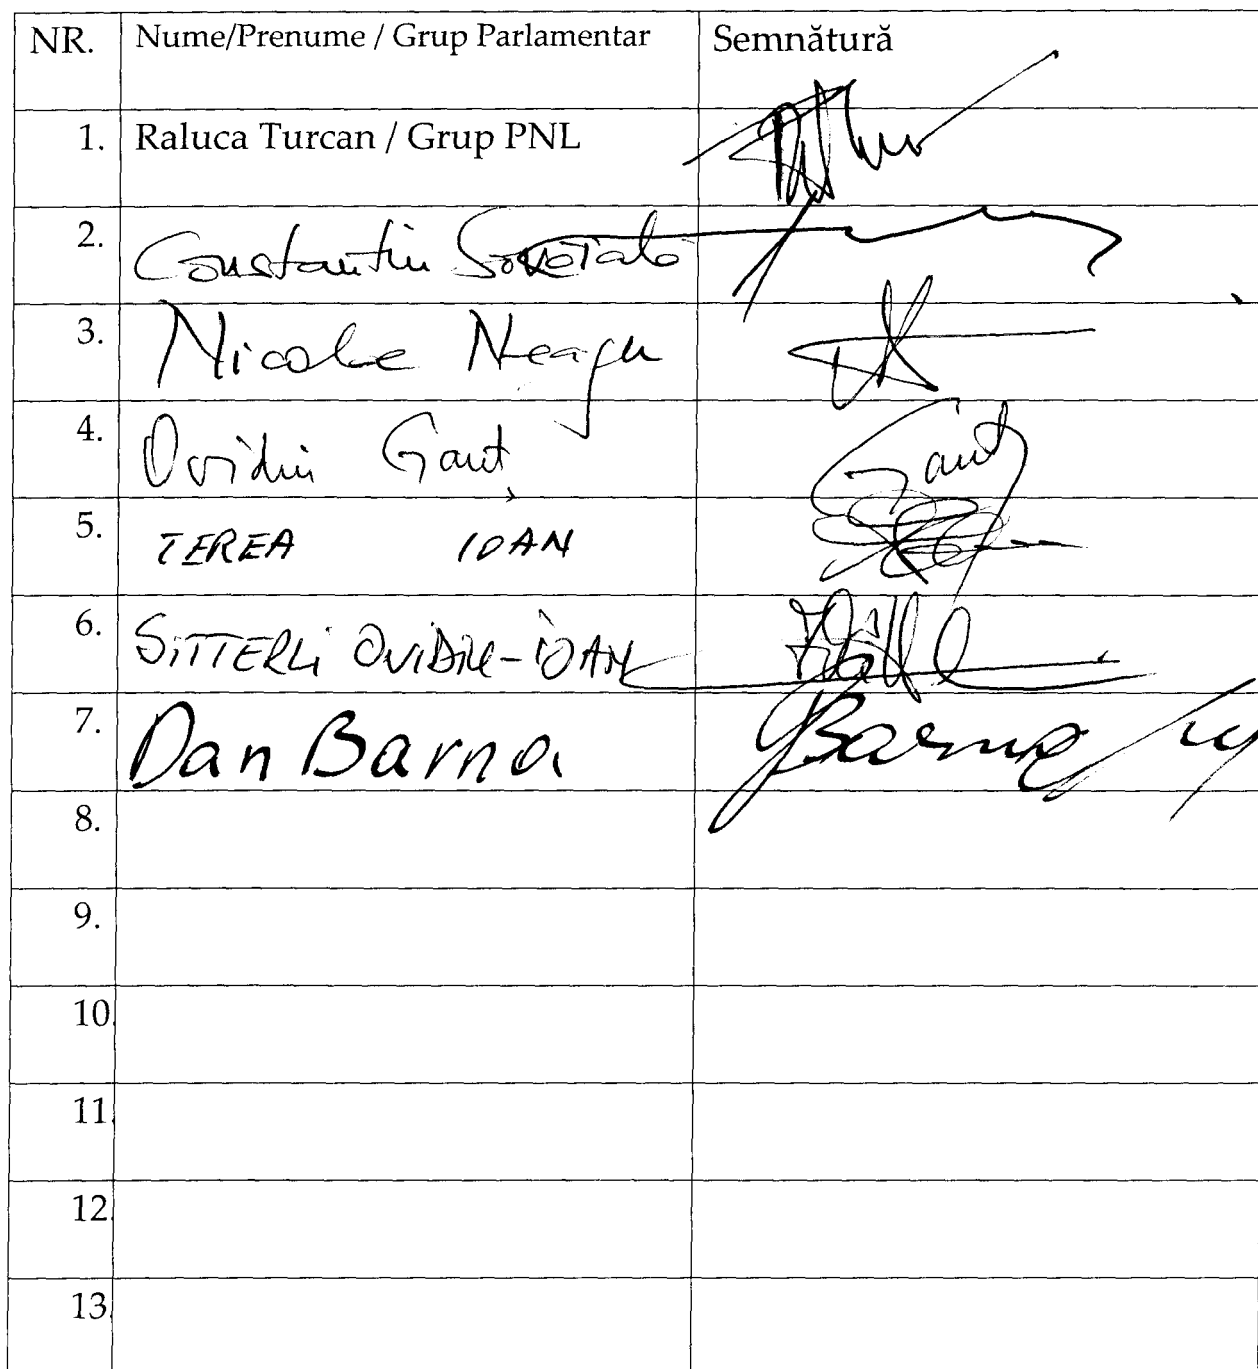 NR. Nume/Prenume / Grup Parlamentar Semnătură
1. Raluca Turcan / Grup PNL
2. Constantin Șovăială
3. Nicolae Neagu
4. Ovidiu Ganț Ganț
5. TEREA IOAN
6. SITTERLI OVIDIU-IOAN
7. Dan Barna Barna
8.
9.
10.
11.
12.
13